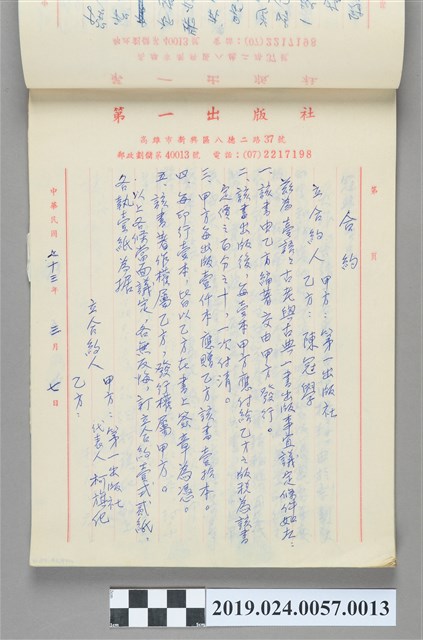 第一出版社
高雄市新興區八德二路37號
郵政劃撥第40013號 電話：(07)2217198
第 頁
合約
立合約人 甲方：第一出版社
乙方：陳冠學
茲為臺語之古老與古典一書出版事宜議定條件如左：
一、該書由乙方編著交由甲方發行。
二、該書出版後，每壹本甲方應付給乙方之版稅為該書
定價之百分之十，一次付清。
三、甲方每出版壹仟本應贈乙方該書壹拾本。
四、每印行壹本，皆以乙方在書上蓋章為憑。
五、該書著作權屬乙方，發行權屬甲方。
以上各條當面議定，各無反悔，訂立合約壹式貳紙，
各執壹紙為據
立合約人 甲方：第一出版社
代表人 柯旗化
乙方：
中華民國七十三年三月七日
2019.024.0057.0013